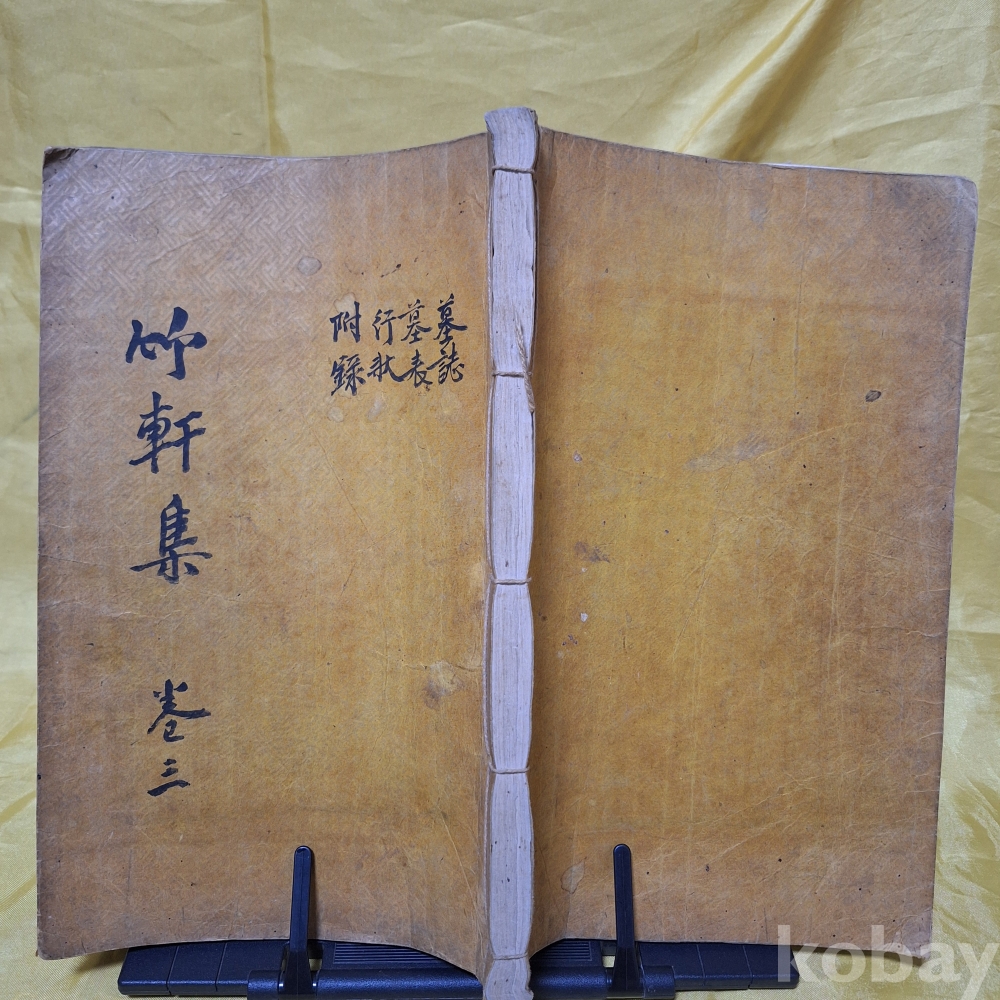 墓誌
墓表
行狀
附錄
竹軒集 卷三
kobay